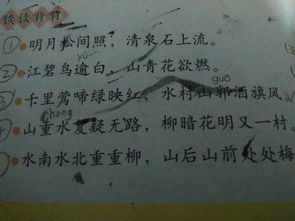 读读背背
① 明月松间照，清泉石上流。
yú
② 江碧鸟逾白，山青花欲燃。
guō
③ 千里莺啼绿映红，水村山郭酒旗风
chóng
④ 山重水复疑无路，柳暗花明又一村。
水南水北重重柳，山后山前处处梅